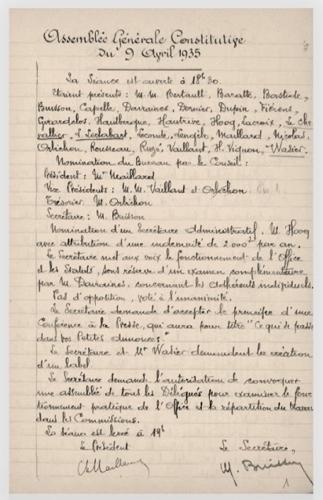 Assemblée Générale Constitutive
du 9 Avril 1935
La séance est ouverte à 18h30.
Etaient présents : M.M. Bertault, Baratte, Bastide,
Buisson, Capelle, Darraines, Dernier, Dupin,
Girardclos, Hautrive, Hocq, Lacroix, Le Che
vallier, Lecomte, Lengelé, Maillard, Nicolas,
Orléchon, Rousseau, Vaillant, H. Vignon, Wasier.
Nomination du Bureau par le Conseil :
Président : Mr Maillard
Vice Présidents : M.M. Vaillant et Orléchon
Trésorier M. Orléchon
Secrétaire : M. Buisson
Nomination d'un Secrétaire Administratif, M. Hocq
avec attribution d'une indemnité de 2.000f par an.
Le Secrétaire met aux voix le fonctionnement de l'Office
et les Statuts, sous réserve d'un examen complémentaire
par M. Darraines, concernant les adhérents individuels.
Pas d'opposition, voté à l'unanimité.
Le Secrétaire demande d'accepter le principe d'une
Conférence à la Presse, qui aura pour titre "Ce qui se passe
dans vos petites annonces".
Le Secrétaire et Mr Wasier demandent la création
d'un label.
Le Secrétaire demande l'autorisation de convoquer
une assemblée de tous les Délégués pour examiner le fonc
tionnement pratique de l'Office et la répartition du travail
dans les Commissions.
La séance est levée à 19h
Le Président Le Secrétaire,
Maillard M. Buisson
1